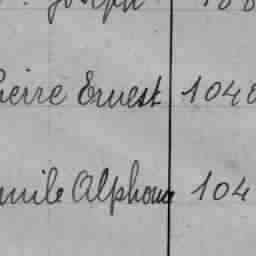 Joseph
ierre Ernest 104
mile Alphonse 104